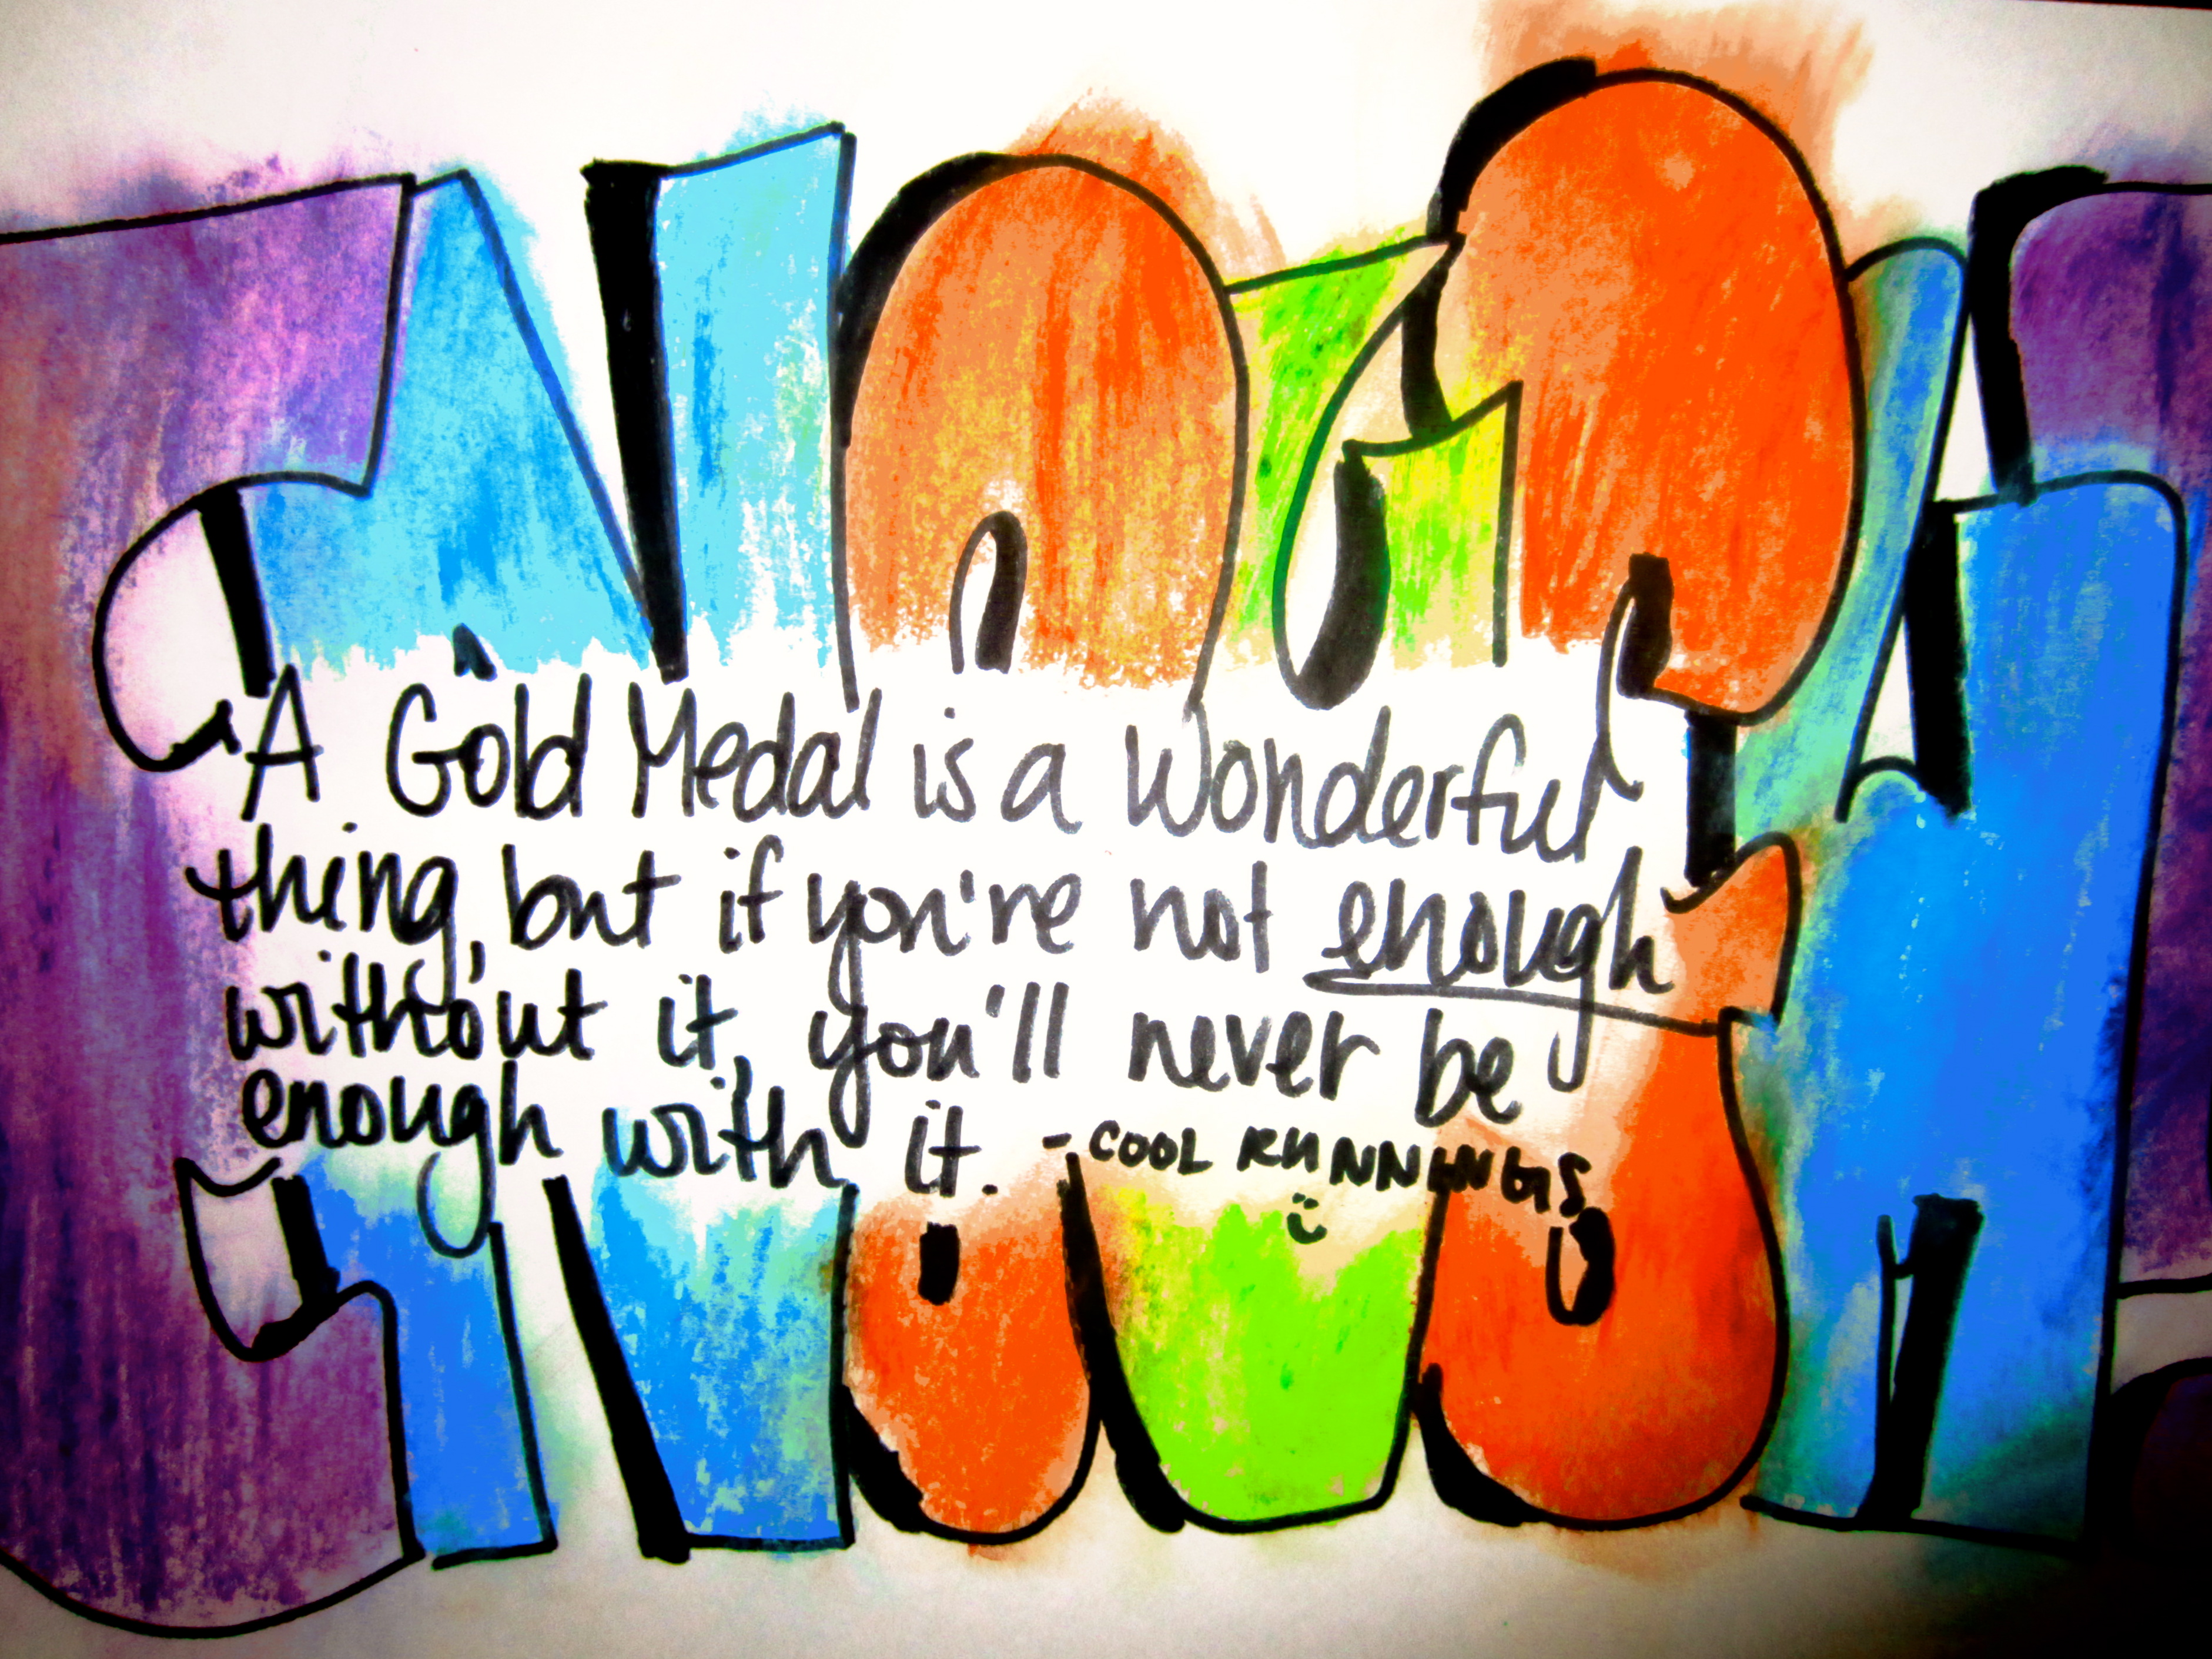 A Gold Medal is a Wonderful
thing, but if you're not enough
without it, you'll never be
enough with it. - COOL RUNNINGS